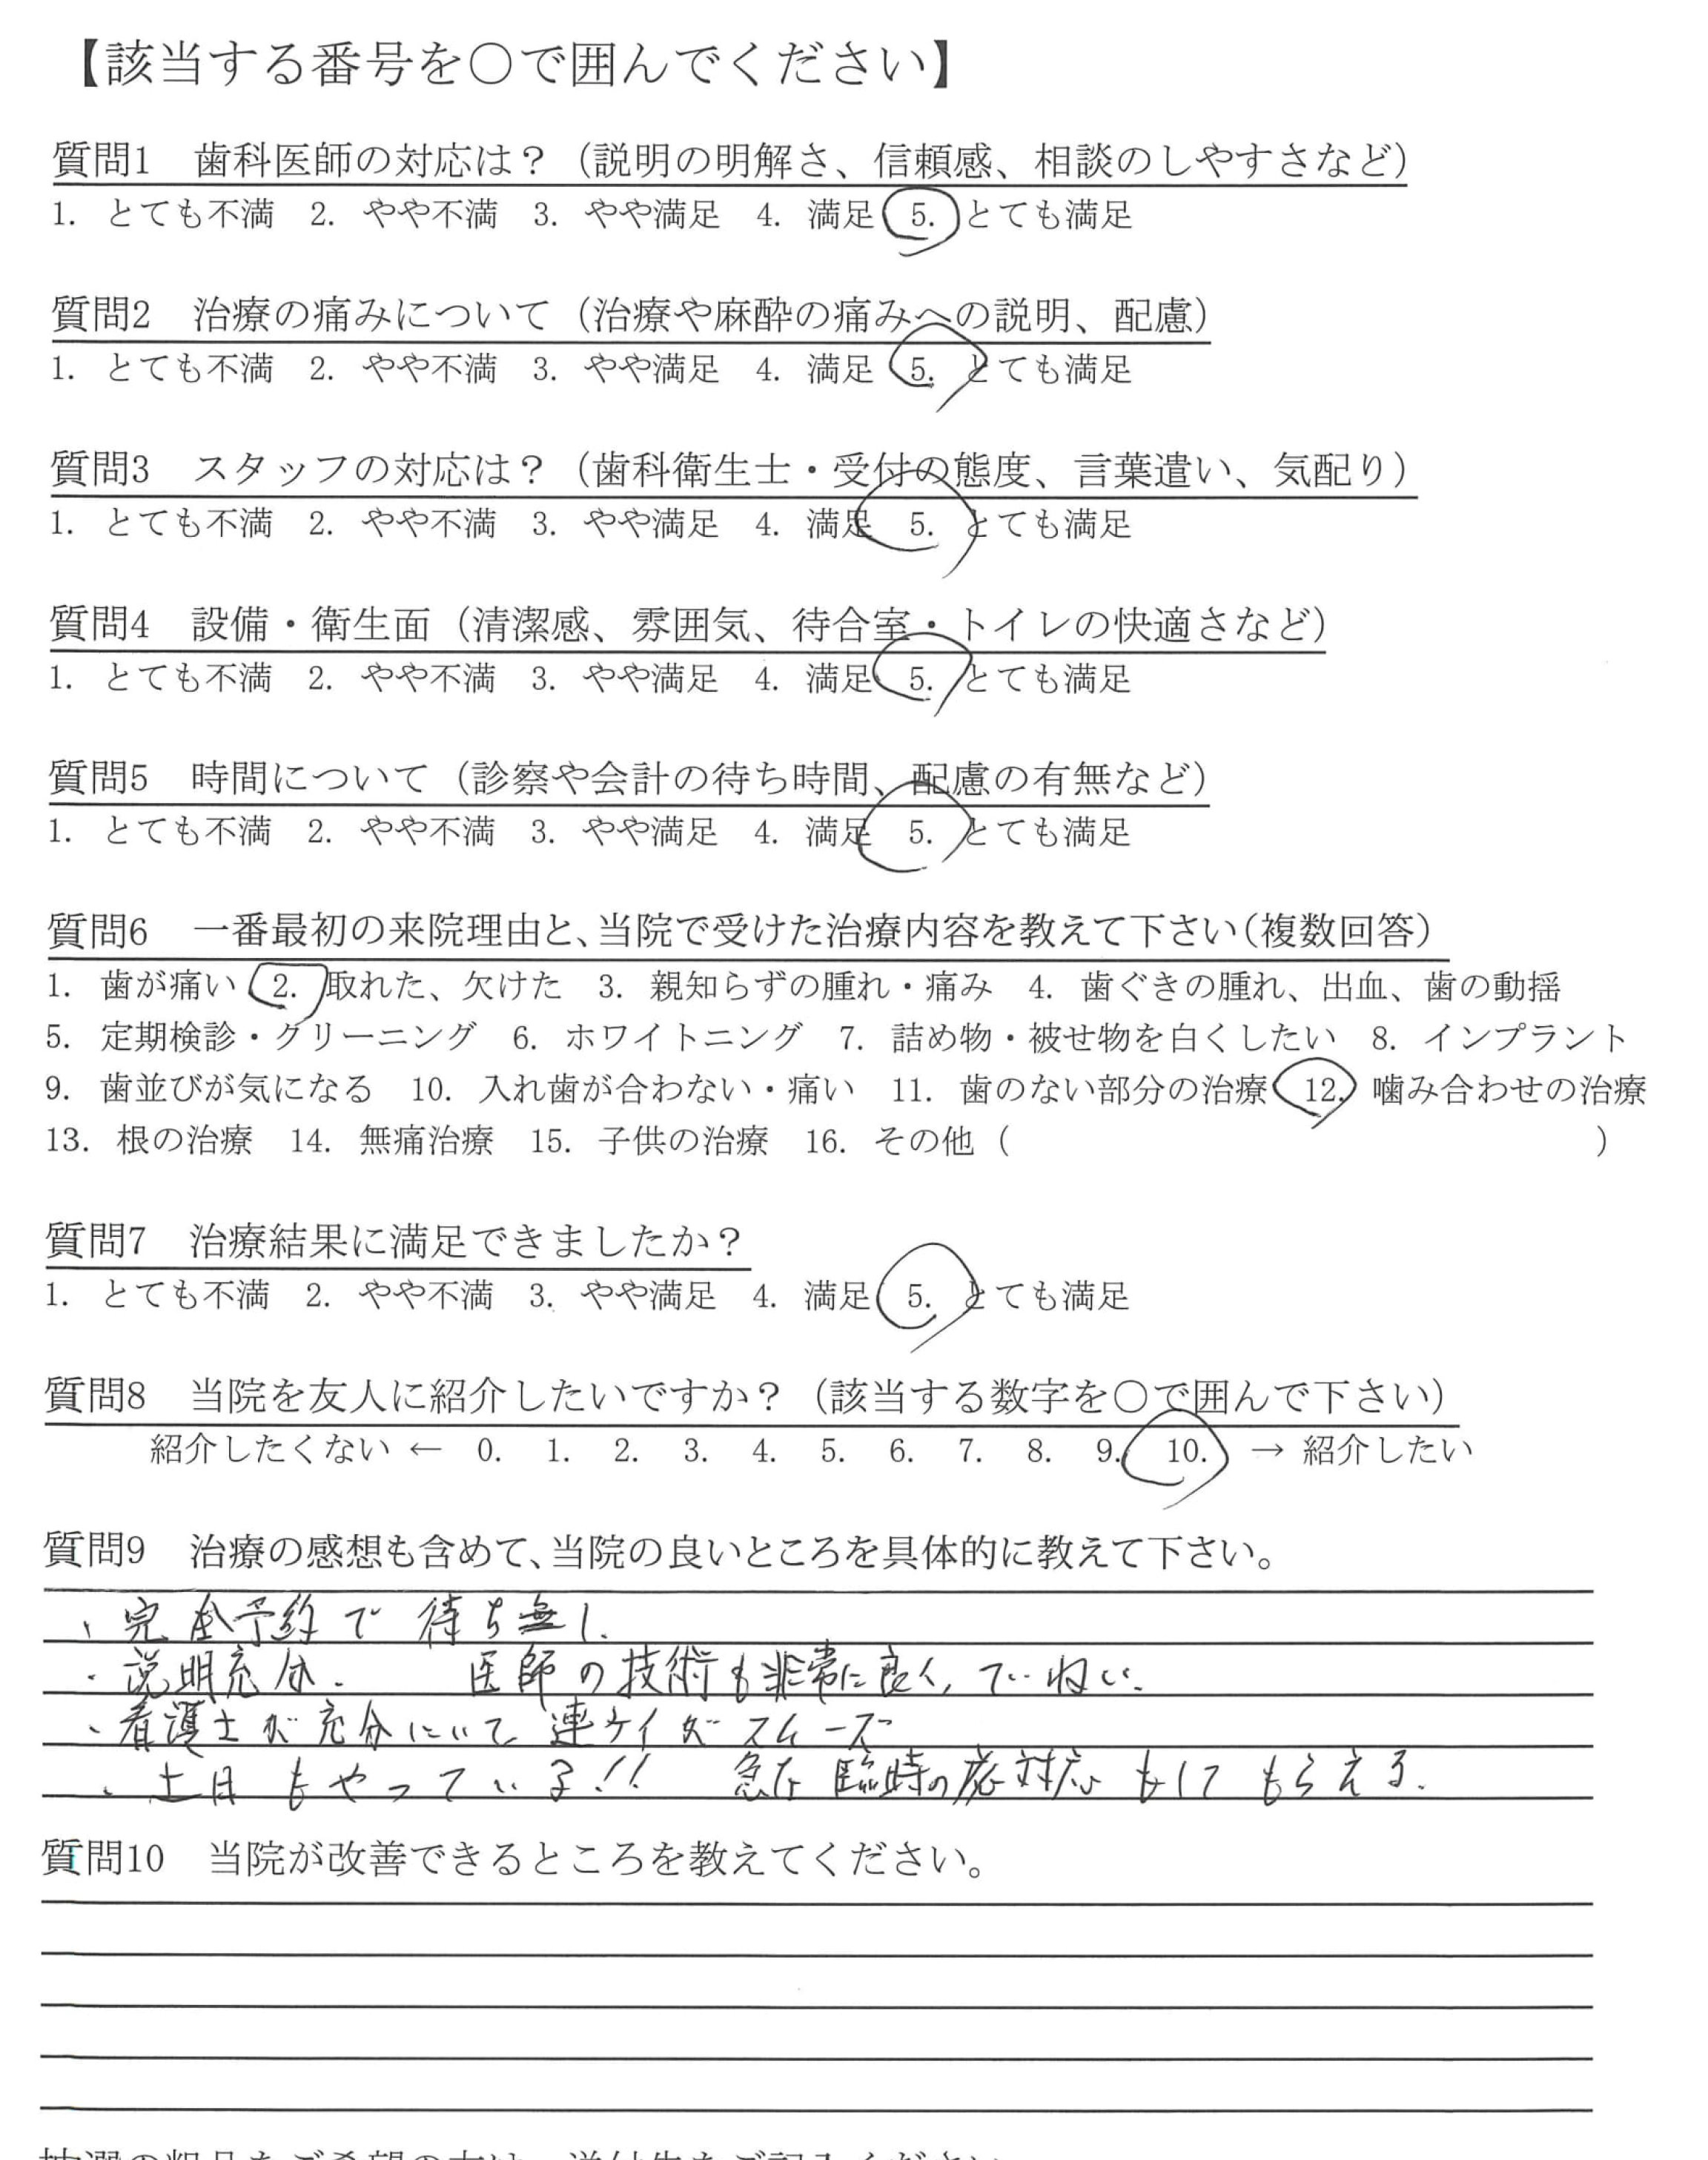 【該当する番号を○で囲んでください】
質問1　歯科医師の対応は？（説明の明解さ、信頼感、相談のしやすさなど）
1. とても不満　2. やや不満　3. やや満足　4. 満足　5. とても満足
質問2　治療の痛みについて（治療や麻酔の痛みへの説明、配慮）
1. とても不満　2. やや不満　3. やや満足　4. 満足　5. とても満足
質問3　スタッフの対応は？（歯科衛生士・受付の態度、言葉遣い、気配り）
1. とても不満　2. やや不満　3. やや満足　4. 満足　5. とても満足
質問4　設備・衛生面（清潔感、雰囲気、待合室・トイレの快適さなど）
1. とても不満　2. やや不満　3. やや満足　4. 満足　5. とても満足
質問5　時間について（診察や会計の待ち時間、配慮の有無など）
1. とても不満　2. やや不満　3. やや満足　4. 満足　5. とても満足
質問6　一番最初の来院理由と、当院で受けた治療内容を教えて下さい（複数回答）
1. 歯が痛い　2. 取れた、欠けた　3. 親知らずの腫れ・痛み　4. 歯ぐきの腫れ、出血、歯の動揺
5. 定期検診・クリーニング　6. ホワイトニング　7. 詰め物・被せ物を白くしたい　8. インプラント
9. 歯並びが気になる　10. 入れ歯が合わない・痛い　11. 歯のない部分の治療　12. 噛み合わせの治療
13. 根の治療　14. 無痛治療　15. 子供の治療　16. その他（　　　　　　　　　　）
質問7　治療結果に満足できましたか？
1. とても不満　2. やや不満　3. やや満足　4. 満足　5. とても満足
質問8　当院を友人に紹介したいですか？（該当する数字を○で囲んで下さい）
紹介したくない ←　0.　1.　2.　3.　4.　5.　6.　7.　8.　9.　10.　→ 紹介したい
質問9　治療の感想も含めて、当院の良いところを具体的に教えて下さい。
・完全予約で待ち無し.
・説明充分.　医師の技術も非常に良く、ていねい.
・看護士が充分にいて、連ケイがスムーズ
・土日もやっている!!　急な臨時の対応もしてもらえる.
質問10　当院が改善できるところを教えてください。